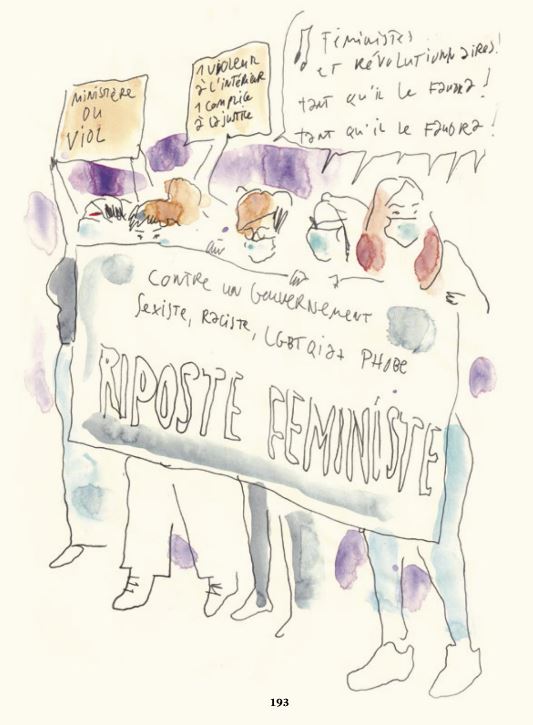 MINISTÈRE
DU
VIOL
1 VIOLEUR
à L'INTÉRIEUR
1 COMPLICE
à LA JUSTICE
FÉMINISTES
ET RÉVOLUTIONNAIRES!
TANT QU'IL LE FAUDRA!
TANT QU'IL LE FAUDRA!
CONTRE UN GOUVERNEMENT
SEXISTE, RACISTE, LGBTQIA+ PHOBE
RIPOSTE FEMINISTE
193